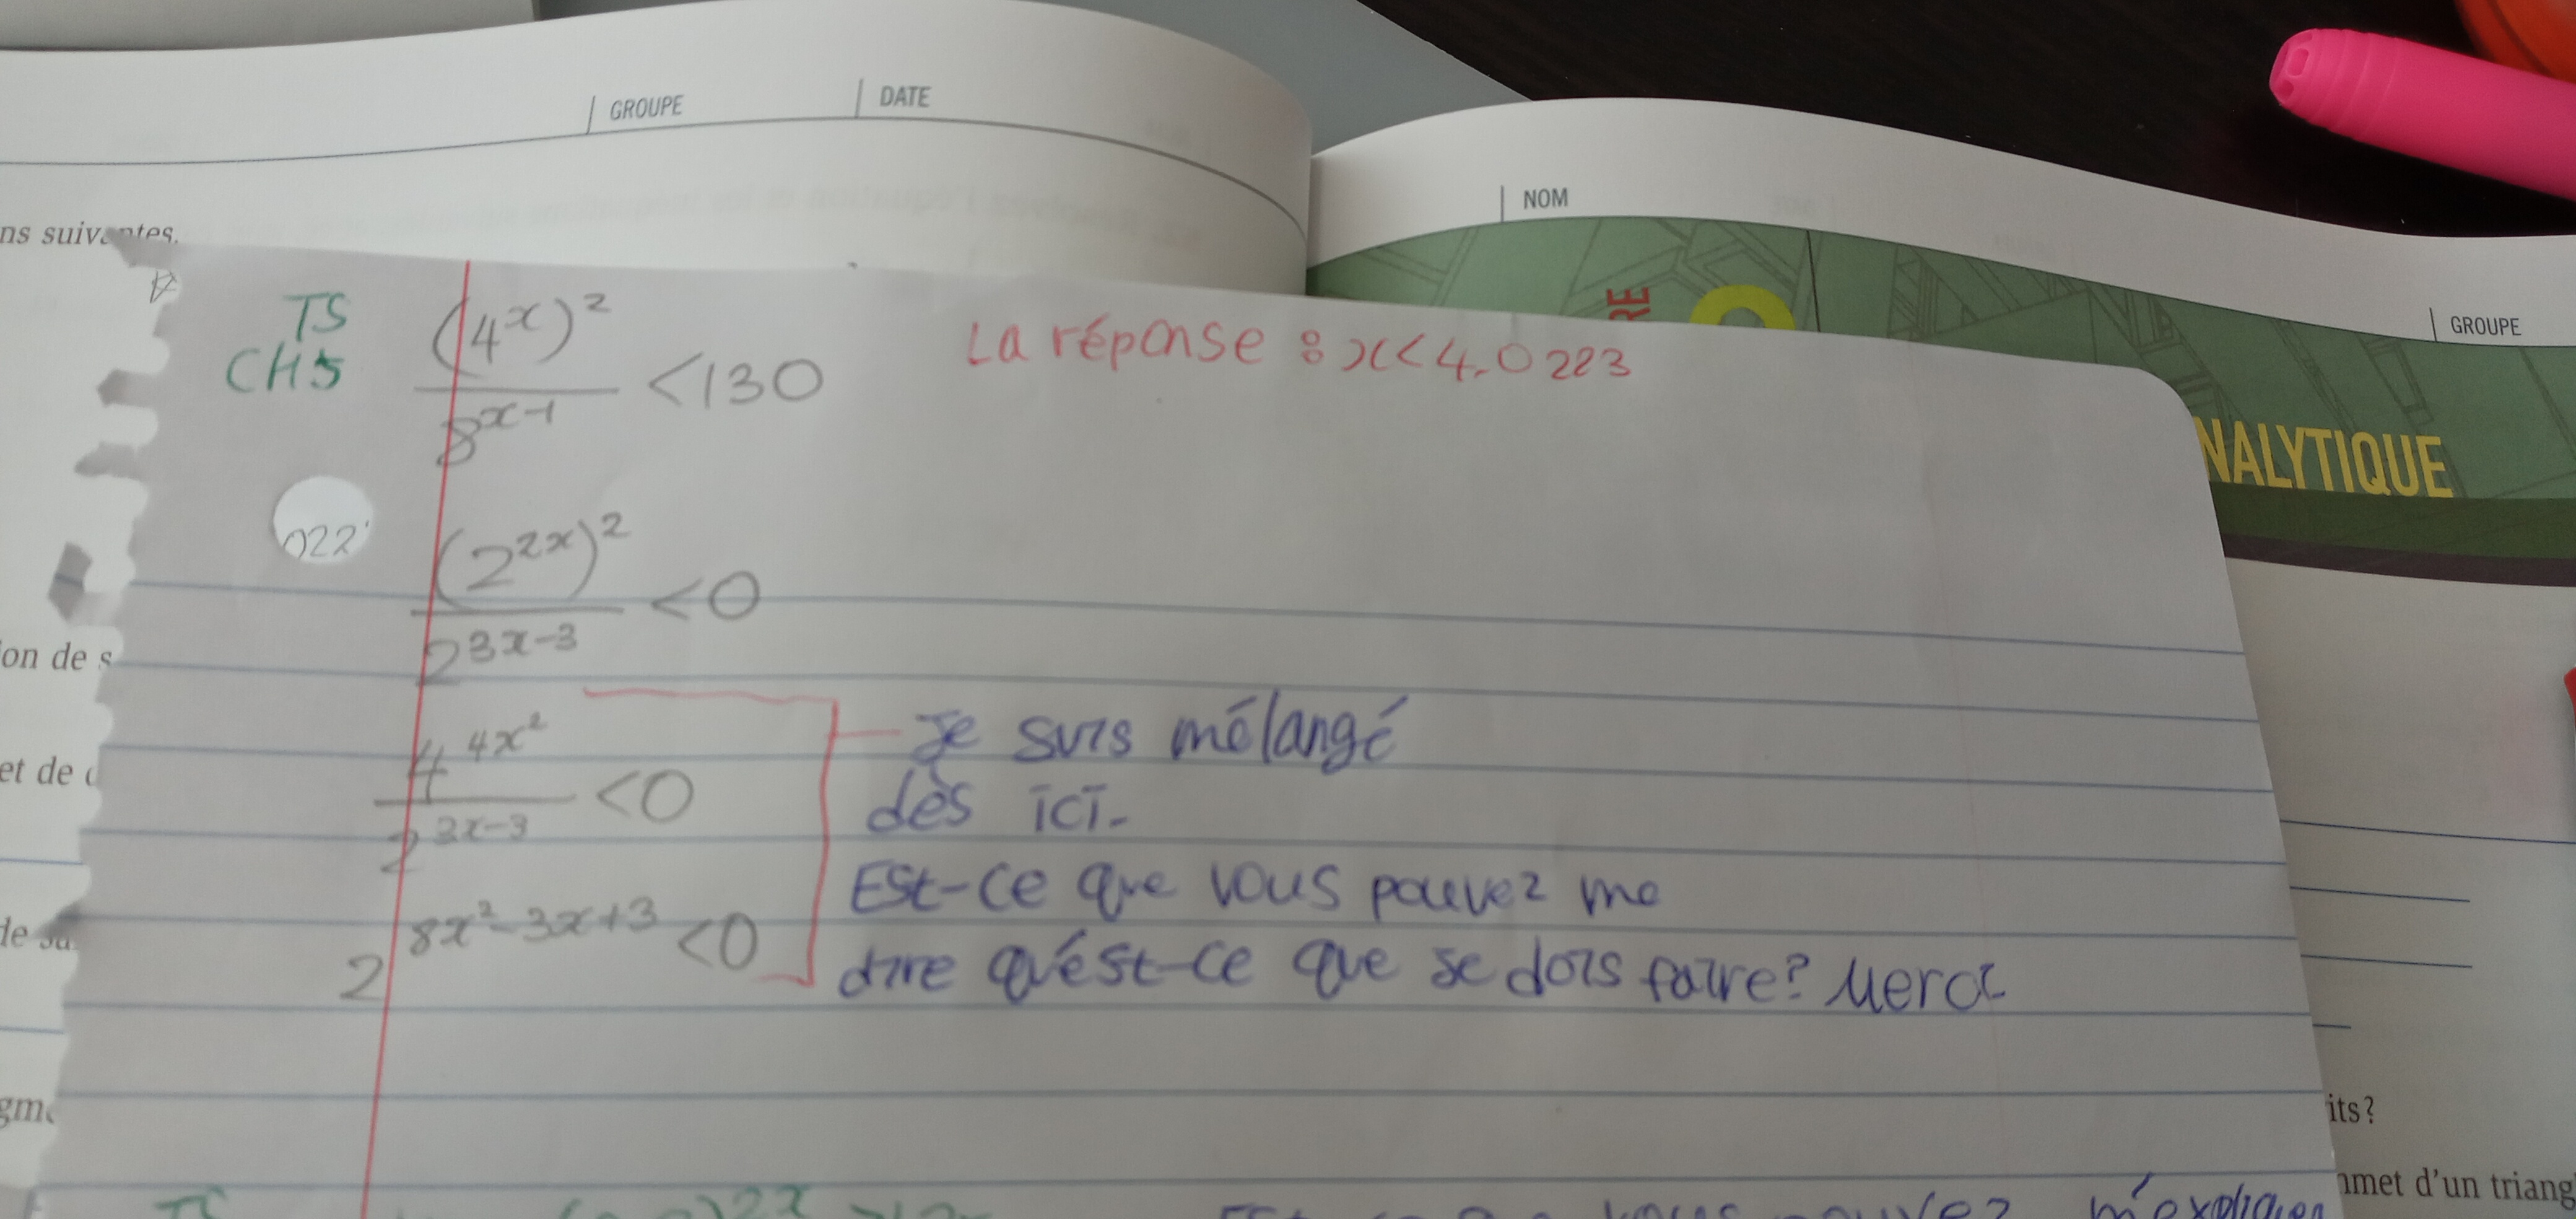 GROUPE
DATE
NOM
GROUPE
NALYTIQUE
ns suivantes.
TS
CH5
(4^x)^2 / 8^(x-1) < 130
La réponse : x < 4,0223
022
(2^(2x))^2 / 2^(3x-3) < 0
on de s
et de
4^(4x^2) / 2^(3x-3) < 0
Je suis mélangé
dès ici.
2^(8x^2-3x+3) < 0
Est-ce que vous pouvez me
dire qu'est-ce que je dois faire? Merci
its?
mmet d'un triang
TS
m'expliquer